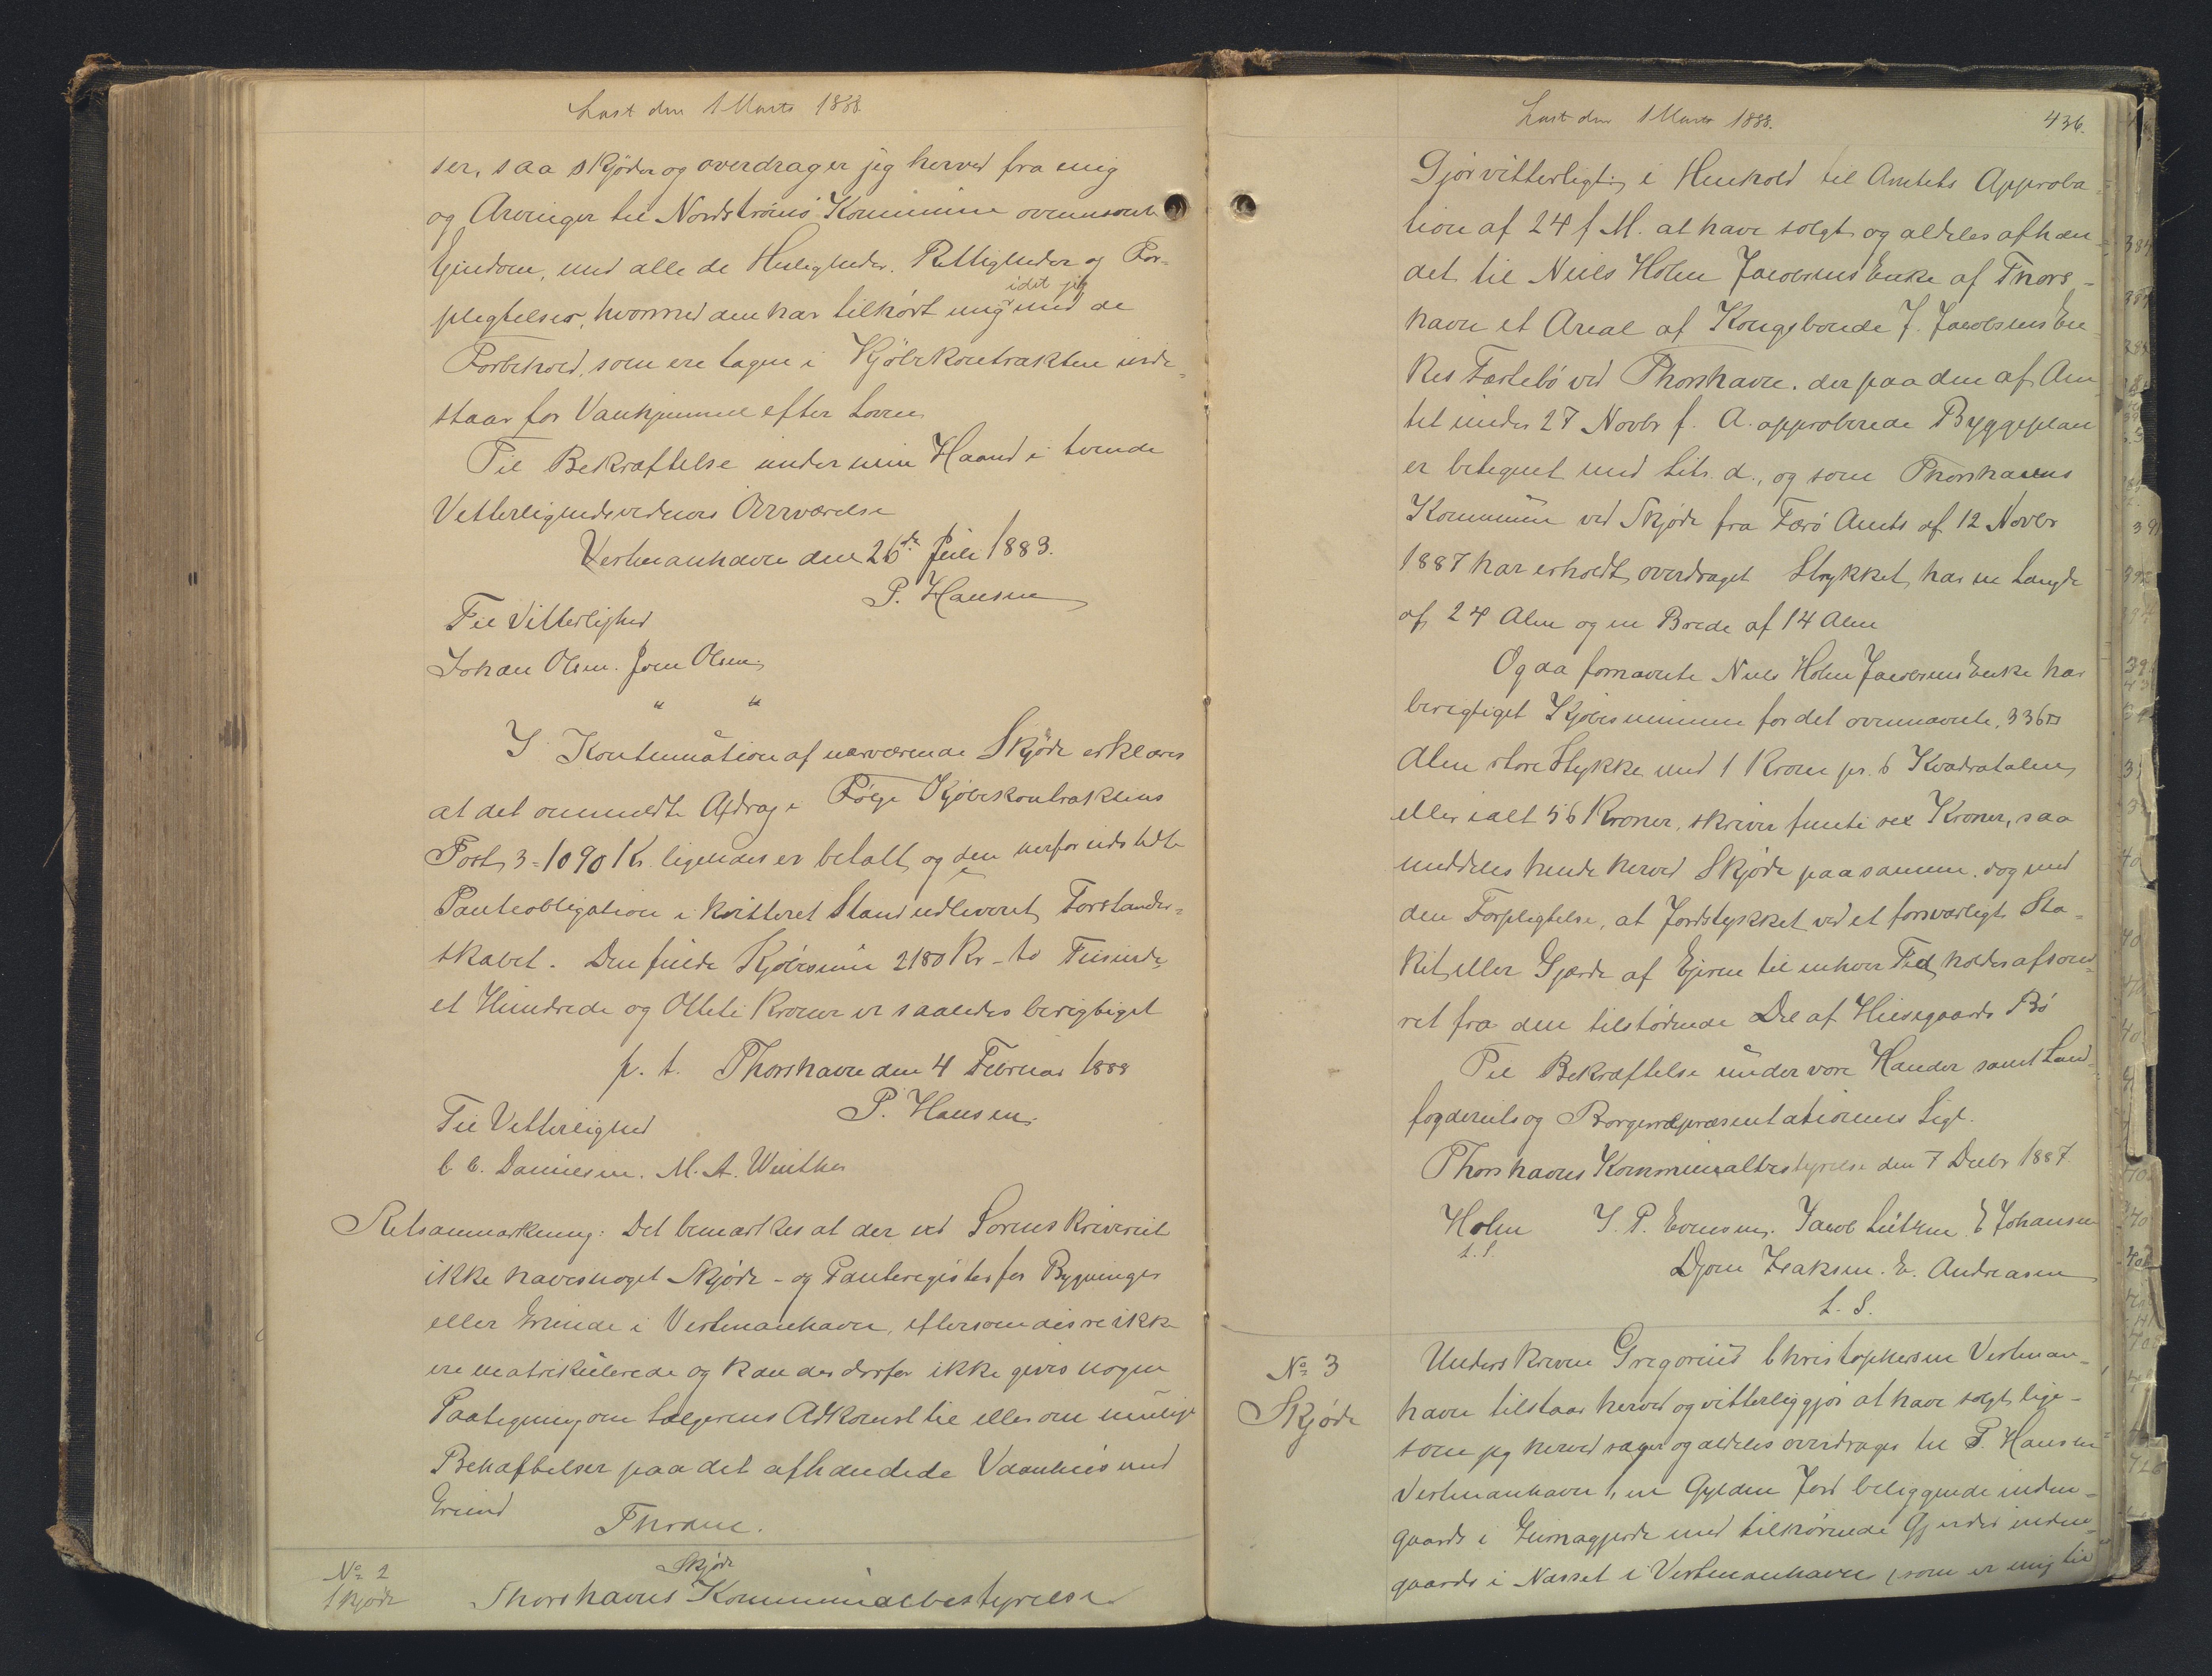 Læst den 1 Marts 1888.
ser, saa skjöder og overdrager jeg herved fra mig
og Arvinger til Nordströms Kommune ovennævnte
Ejendom, med alle de Herligheder, Rettigheder og For-
idet jeg
pligtelser, hvormed den har tilhört mig med de
Forbehold, som ere tagne i Kjöbekontrakten inde-
staar for Vanhjemmel efter Loven
Til Bekræftelse under min Haand i tvende
Vitterlighedsvidners Overværelse
Vestmanhavn den 26de Juli 1883.
P. Hansen
Til Vitterlighed
Johan Olsen. Joen Olsen
" "
I Kontinuation af nærværende Skjöde erklæres
at det ommeldte Afdrag i Fölge Kjöbekontraktens
Post 3 = 1090 Kr. ligeledes er betalt og den herfor udstedte
Panteobligation i kvitteret Stand udleveret Forstander-
skabet. Den fulde Kjöbesum 2180 Kr - to Tusinde
et Hundrede og Otteti Kroner er saaledes berigtiget
p. t. Thorshavn den 4 Februar 1888
P. Hansen
Til Vitterlighed
C. C. Danielsen. M. A. Winther
Retsanmærkning: Det bemærkes at der ved Sorenskriveriet
ikke haves noget Skjöde- og Panteregister for Bygninger
eller Grunde i Vestmanhavn, eftersom disse ikke
ere matrikulerede og kan der derfor ikke gives nogen
Paategning om Sælgerens Adkomst til eller om mulige
Behæftelser paa det afhændede Vaanhus med
Grund
Thrane.
No 2
Skjöde
Skjöde
Thorshavns Kommunalbestyrelse
Læst den 1 Marts 1888.
436.
Gjör vitterligt i Henhold til Amtets Approba-
tion af 24 f. M. at have solgt og aldeles afhæn-
det til Niels Holm Jacobsens Enke af Thors-
havn et Areal af Kongsbonde J. Jacobsens En-
kes Fæstebö ved Thorshavn, der paa den af Am-
tet under 27 Novbr f. A. approberede Byggeplan
er betegnet med Litr. d., og som Thorshavns
Kommune ved Skjöde fra Færö Amts af 12 Novbr
1887 har erholdt overdraget Stykket har en Længde
af 24 Alen og en Brede af 14 Alen
Og da fornævnte Niels Holm Jacobsens Enke har
berigtiget Kjöbesummen for det ovennævnte, 336 □
Alen store Stykke med 1 Krone pr. 6 Kvadratalen
eller ialt 56 Kroner, skriver femti sex Kroner, saa
meddeles hende herved Skjöde paa samme, dog med
den Forpligtelse, at Jordstykket ved et forsvarligt Sta-
kit eller Gjærde af Ejeren til enhver Tid holdes afsond-
ret fra den tilstödende Del af Husegaards Bö
Til Bekræftelse under vore Hænder samt Land-
fogderiets og Borgerrepræsentationens Sigl.
Thorshavns Kommunalbestyrelse den 7 Decbr 1887
Holm J. P. Evensen. Jacob Lützen. E Johansen
L. S.
Djoen Isaksen. E. Andreasen
L. S.
No 3
Skjöde
Underskreven Gregorius Christophersen Vestman-
havn tilstaar herved og vitterliggjör at have solgt lige-
som jeg herved sælger og aldeles overdrager til P. Hansen
Vestmanhavn 1, en Gylden Jord beliggende inden-
gaards i med tilhörende Gjerder inden-
gaards i Næsset i Vestmanhavn, som er mig til